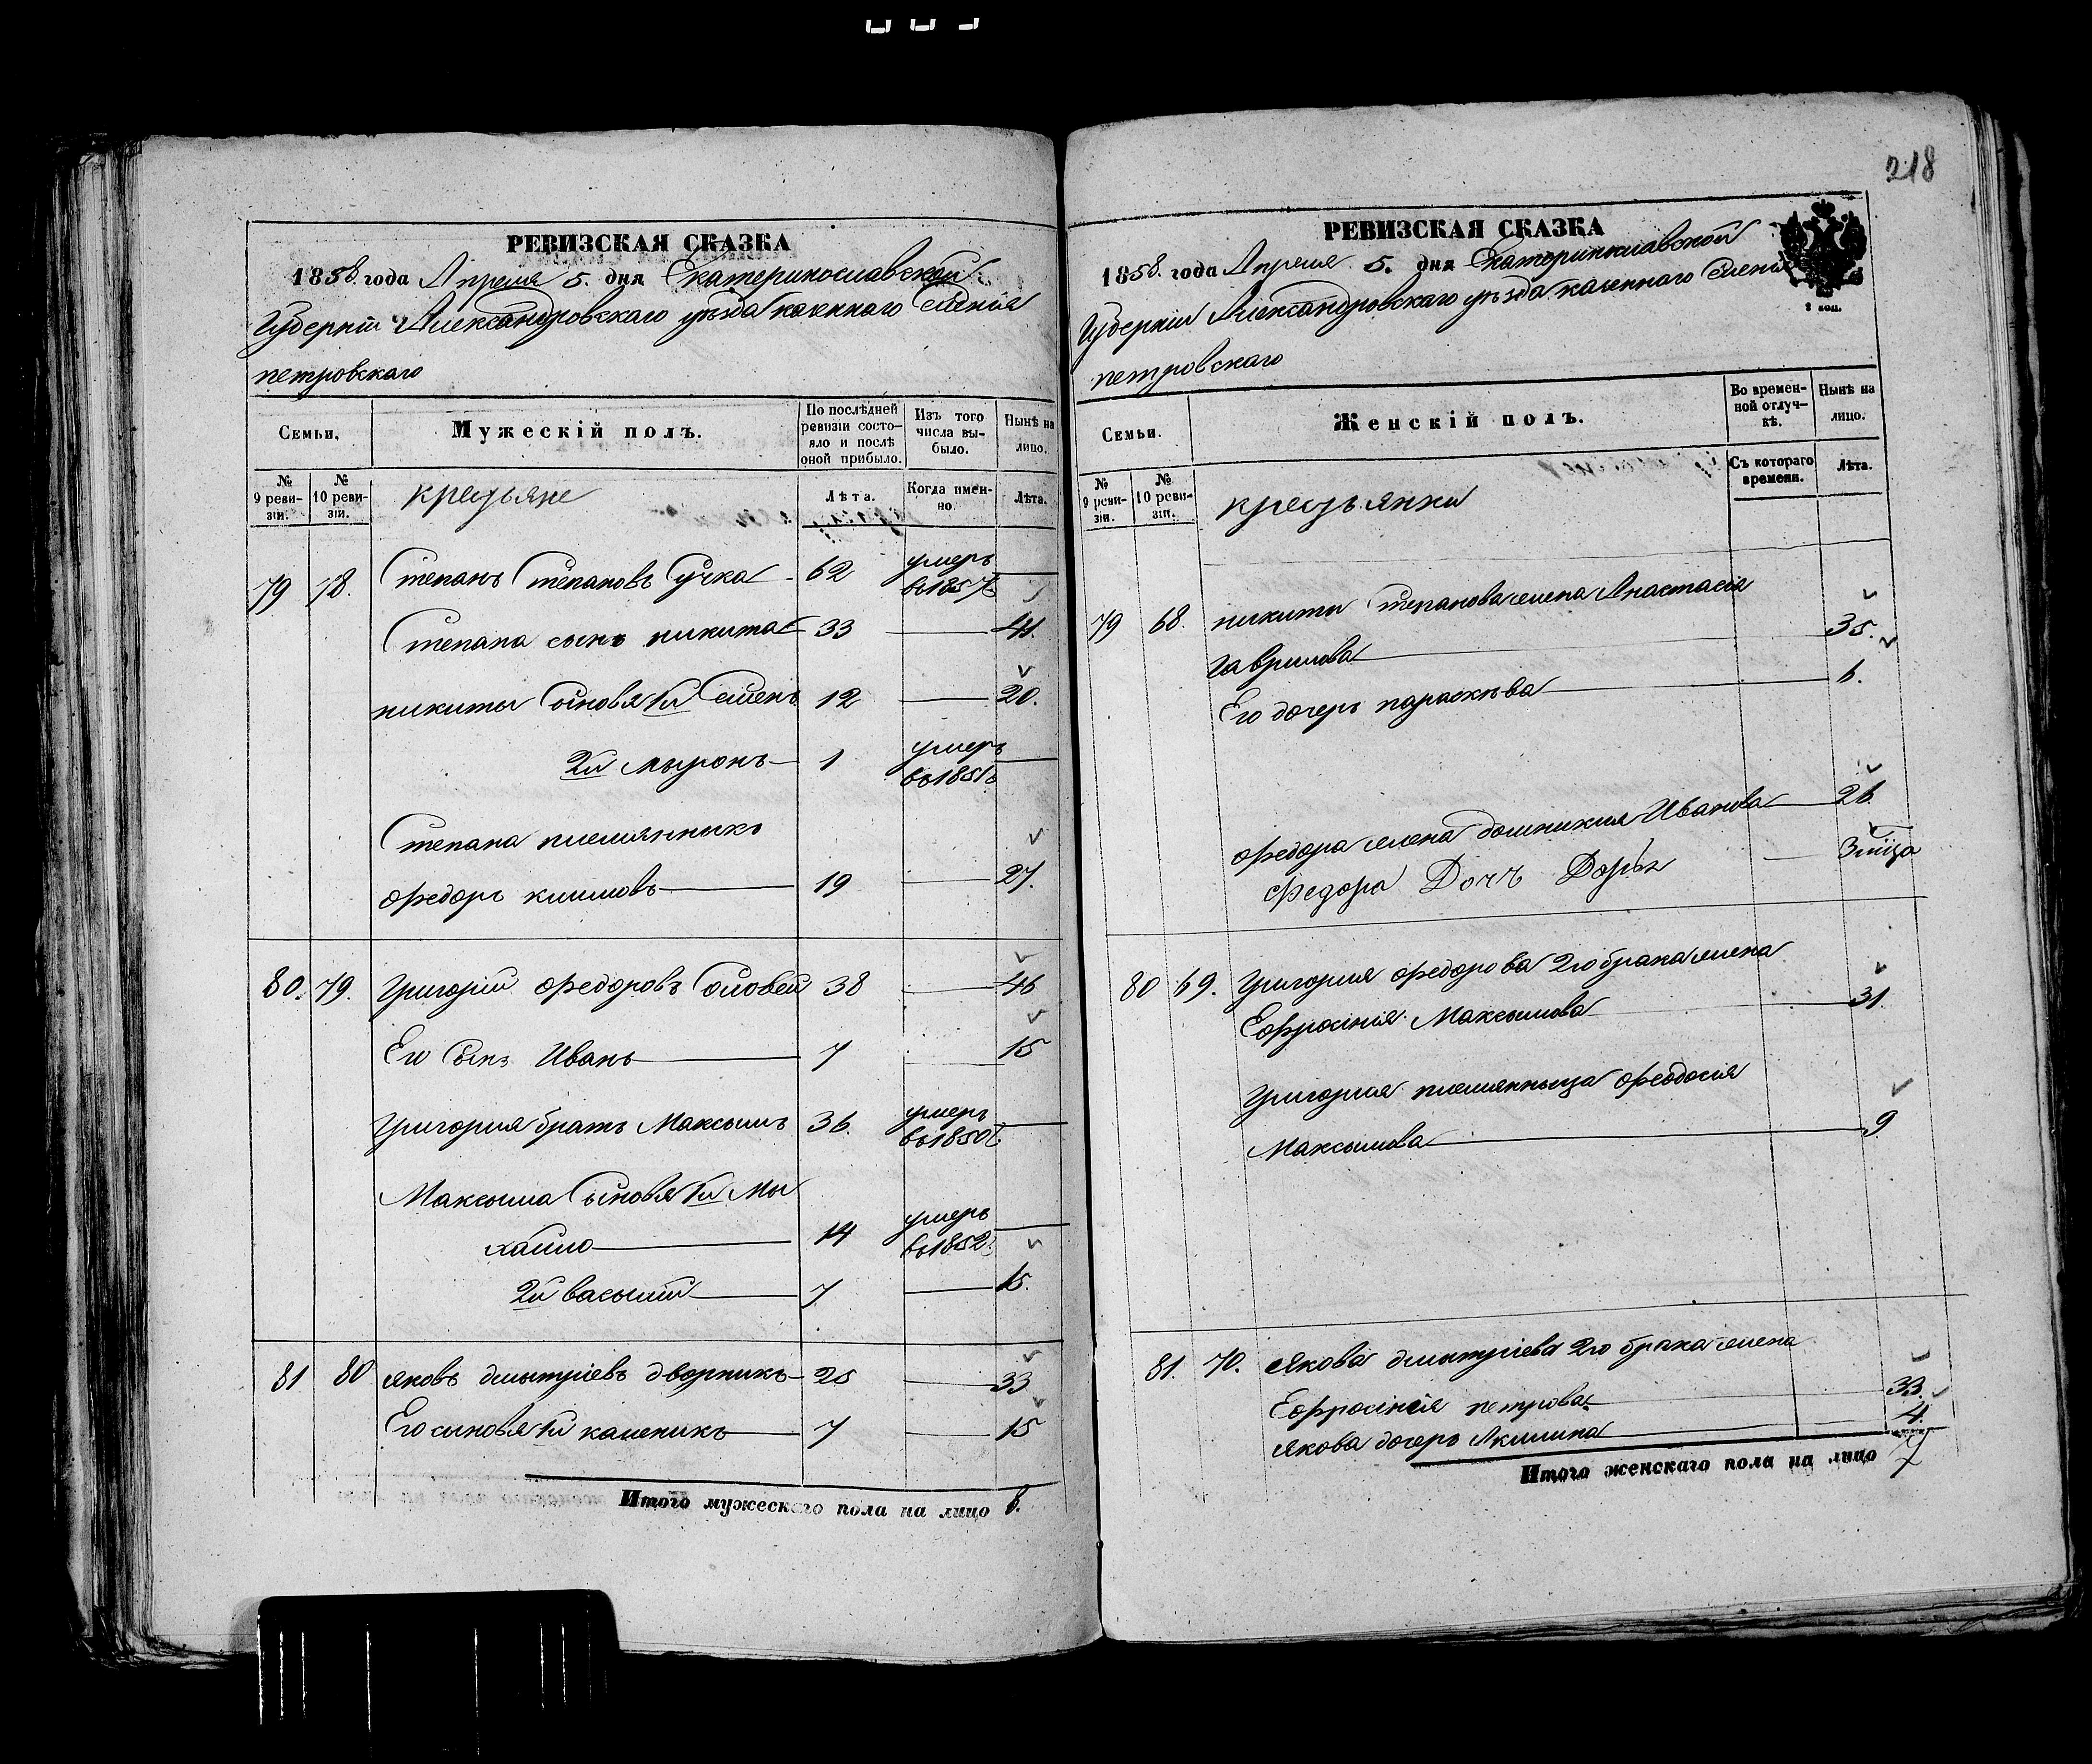 218
РЕВИЗСКАЯ СКАЗКА
1858 года Апреля 5. дня Екатеринославской
Губерніи Александровского уѣзда казенного Селенія
петровского
Семьи. Мужескій полъ. По послѣдней ревизіи состояло и послѣ оной прибыло. Изъ того числа выбыло. Нынѣ на лицо.
№ 9 ревизіи. № 10 ревизіи. крестьяне Лѣта. Когда именно. Лѣта.
79 78. Степанъ Степановъ Сучка 62 умеръ
в 1857
Степана сынъ никита 33 41.
никиты Сыновя 1й Семенъ 12 20.
2й мыронъ 1 умеръ
в 1851
Степана племянникъ
Федоръ климовъ 19 27.
80. 79. Григорій Федоровъ Соловей 38 46
Его Сынъ Иванъ 7 15
Григория братъ Максымъ 36. умеръ
в 1850
Максыма Сыновя 1й Мы
хайло 14 умеръ
в 1852
2й васылій 7 15.
81 80 яковъ дмытріевъ дворникъ 25 33
Его сыновя 1й каленикъ 7 15
Итого мужескаго пола на лицо 8.
РЕВИЗСКАЯ СКАЗКА
1858. года Апреля 5. дня Екатеринославской
Губерніи Александровскаго уѣзда казенного Селенія
петровскаго
Семьи. Женскій полъ. Во временной отлучкѣ. Нынѣ на лицо.
№ 9 ревизіи. № 10 ревизіи. крестьянки Съ котораго времени. Лѣта.
79 68. никиты Степанова жена Анастасія
гаврилова 35.
Его дочерь параскѣва 6.
Федора жена домникия Иванова 26
Федора Дочь Дарья 3 мѣца
80 69. Григория Федорова 2го брака жена
Ефросінія Максымова 31
Григория племянныца Феодосія
Максымова 9
81. 70. Якова дмытріева 2го брака жена
Ефросінія петрова 33.
якова дочерь Акилина 4.
Итого женскаго пола на лицо 7